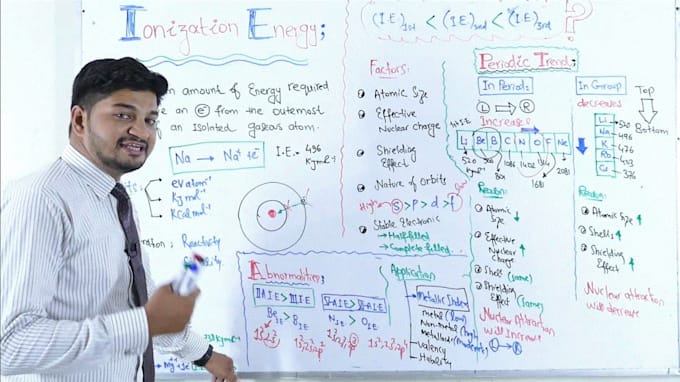 Ionization Energy;
(I.E)1st < (I.E)2nd < (I.E)3rd ?
amount of Energy required
an e⁻ from the outermost
an isolated gaseous atom.
Na → Na⁺ + e⁻
I.E = 496
KJmol⁻¹
eV atom⁻¹
KJ mol⁻¹
KCal mol⁻¹
Reactivity
Factors:
Atomic Size
Effective
Nuclear charge
Shielding
Effect
Nature of orbits
High s > p > d > f low
Stable Electronic
→ Half filled
→ Complete filled
Periodic Trend;
In Period;
L → R
Increases
Li Be B C N O F Ne
520 801 1086 1402 1681 2081
Reason:
Atomic
Size ↓
Effective
Nuclear
Charge ↑
Shell (same)
Shielding
Effect (same)
Nuclear Attraction
will Increase
In Group
decreases
Top
Bottom
Li → 520
Na → 496
K
Rb
Cs → 376
Reason:
Atomic Size ↑
Shells ↑
Shielding
Effect ↑
Nuclear attraction
will decrease
Abnormalities;
IIA I.E > IIIA I.E
VA I.E > VIA I.E
Be I.E > B I.E
N I.E > O I.E
1s² 2s²
1s² 2s² 2p¹
1s² 2s² 2p³
1s² 2s² 2p⁴
Application
Metallic Index
metal (low)
Non-metal (high)
Metalloid
Valency
L → R